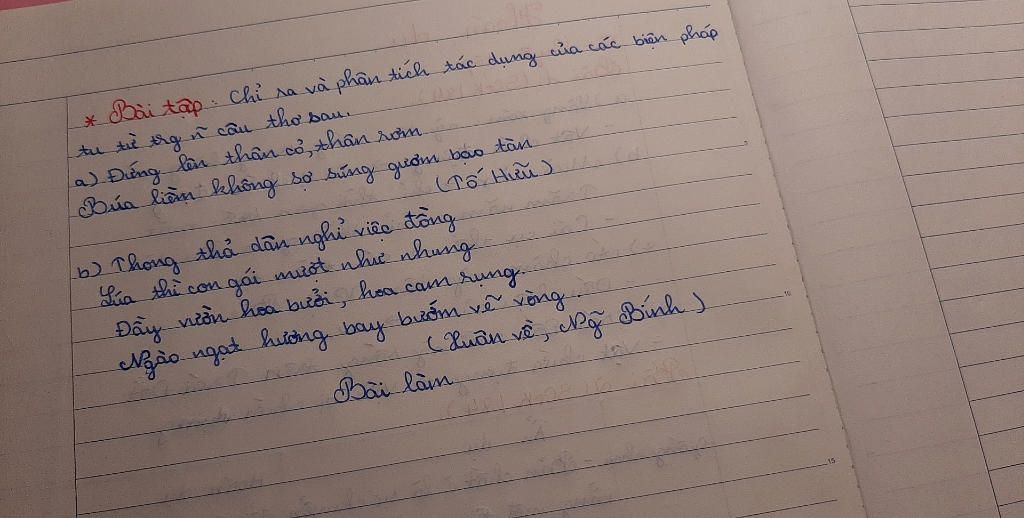 * Bài tập: Chỉ ra và phân tích tác dụng của các biện pháp
tu từ trg ~ câu thơ sau.
a) Đứng lên thân cỏ, thân rơm
Búa liềm không sợ súng gươm bạo tàn
(Tố Hữu)
b) Thong thả dân nghỉ việc đồng
Lúa thì con gái mượt như nhung
Đầy vườn hoa bưởi, hoa cam rụng.
Ngào ngạt hương bay bướm vẽ vòng.
(Xuân về, Ng~ Bính)
Bài làm
10
15